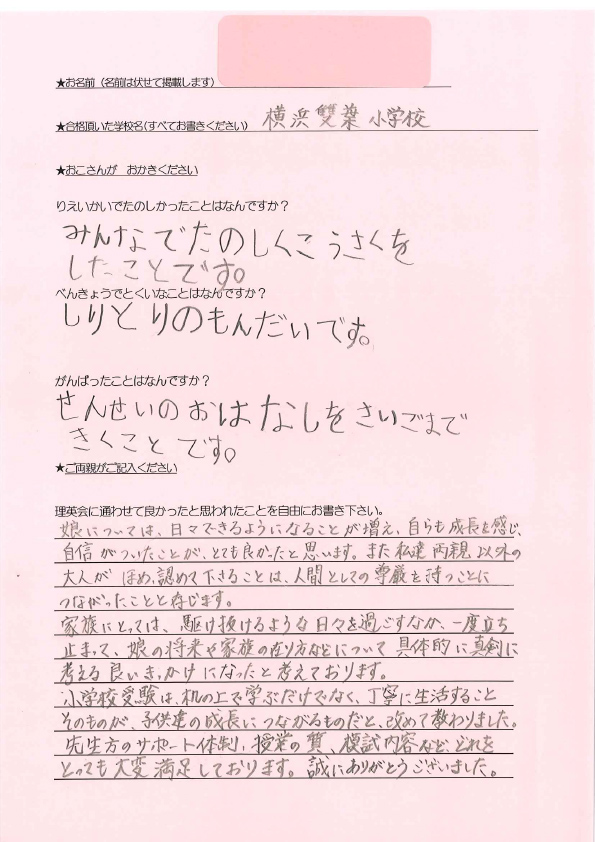 ★お名前（名前は伏せて掲載します）
★合格頂いた学校名(すべてお書きください) 横浜雙葉小学校
★おこさんが　おかきください
りえいかいでたのしかったことはなんですか？
みんなでたのしくこうさくを
したことです。
べんきょうでとくいなことはなんですか？
しりとりのもんだいです。
がんばったことはなんですか？
せんせいのおはなしをさいごまで
きくことです。
★ご両親がご記入ください
理英会に通わせて良かったと思われたことを自由にお書き下さい。
娘については、日々できるようになることが増え、自らも成長を感じ、
自信がついたことが、とても良かったと思います。また私達両親以外の
大人がほめ、認めて下さることは、人間としての尊厳を持つことに
つながったことと存じます。
家族にとっては、駆け抜けるような日々を過ごすなか、一度立ち
止まって、娘の将来や家族の在り方などについて具体的に真剣に
考える良いきっかけになったと考えております。
小学校受験は、机の上で学ぶだけでなく、丁寧に生活すること
そのものが、子供達の成長につながるものだと、改めて教わりました。
先生方のサポート体制、授業の質、模試内容など、どれを
とっても大変満足しております。誠にありがとうございました。